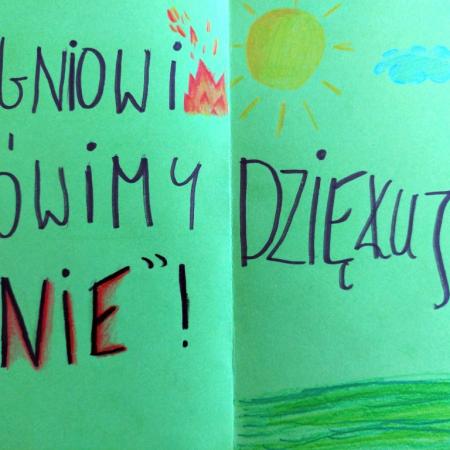 GNIOWI
ÓWIMY
NIE"!
DZIĘKUJ